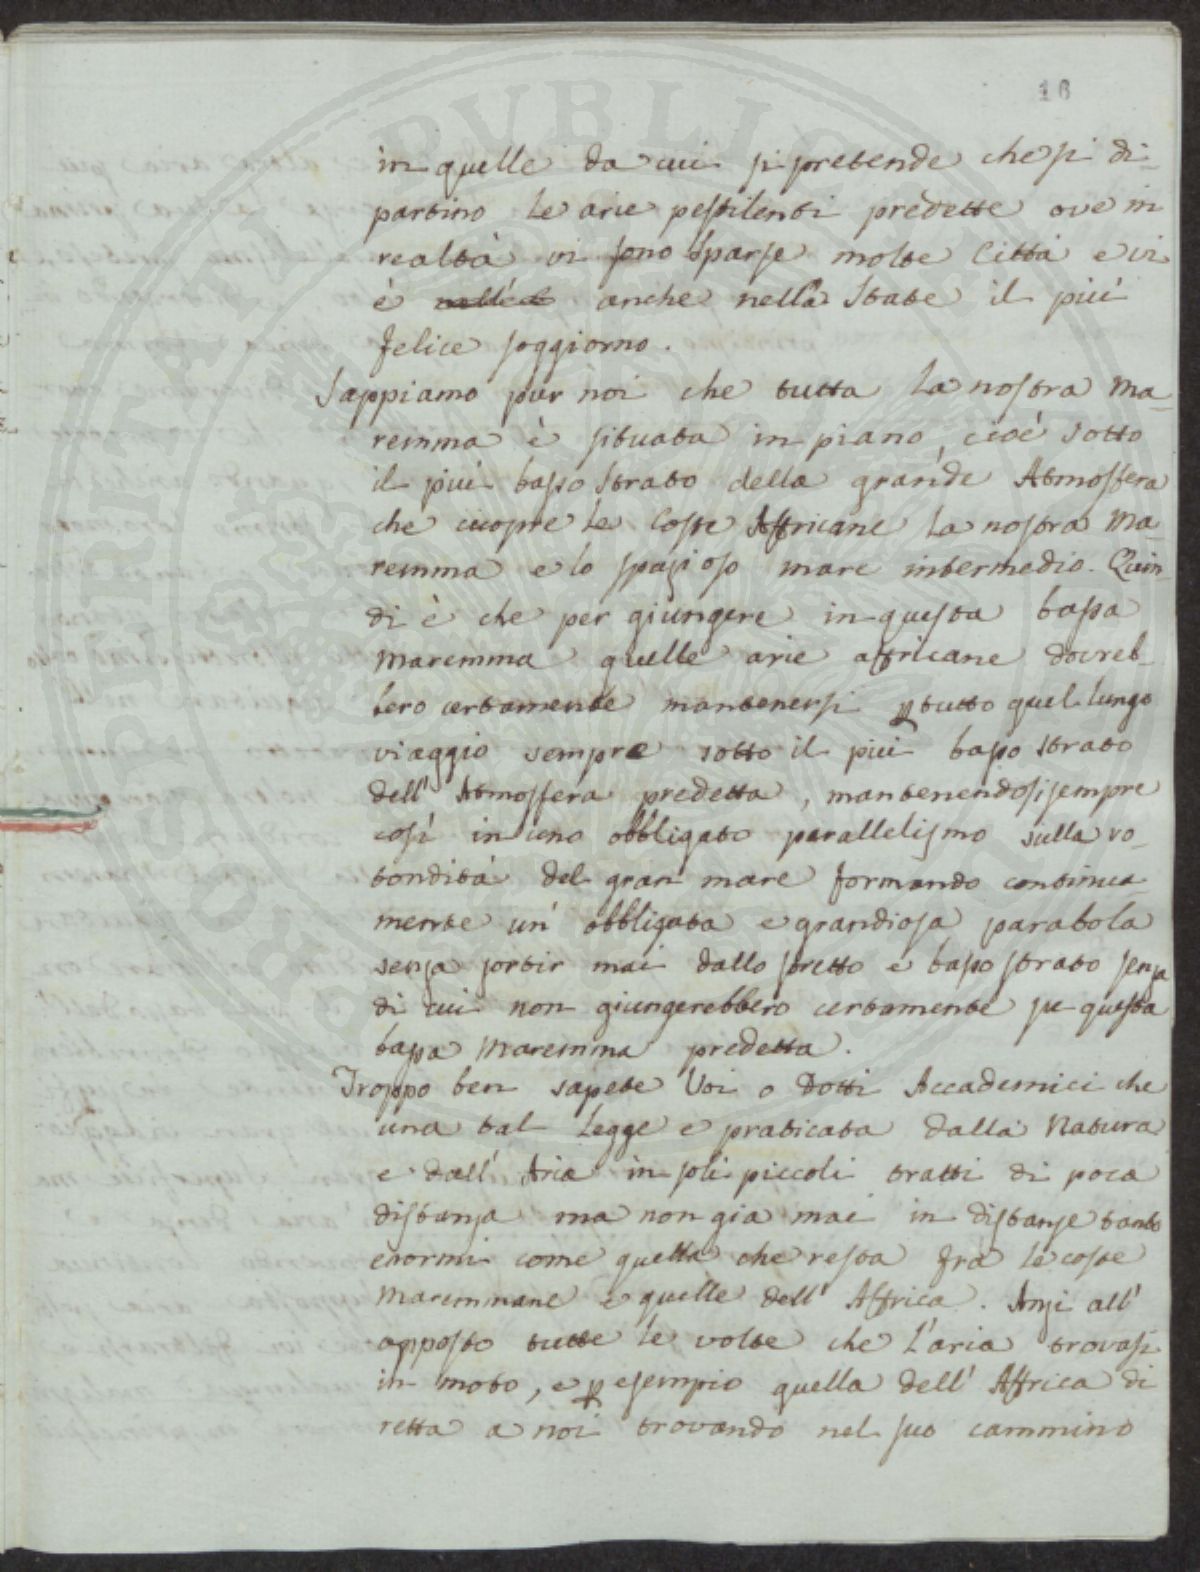 16
in quelle da cui si pretende che si di-
partino le arie pestilenti predette ove in
realtà vi sono sparse molte Città e vi
è anche nella State il più
felice soggiorno.
Sappiamo pur noi che tutta la nostra Ma-
remma è situata in piano, cioè sotto
il più basso strato della grande Atmosfera
che cuopre le Coste Affricane la nostra Ma-
remma e lo spazioso mare intermedio. Quin-
di è che per giungere in questa bassa
Maremma quelle arie affricane dovreb-
bero certamente mantenersi p tutto quel lungo
viaggio sempre sotto il più basso strato
dell' Atmosfera predetta, mantenendosi sempre
così in uno obbligato parallelismo sulla ro-
tondità del gran mare formando continua-
mente un' obbligata e grandiosa parabola
senza sortir mai dallo stretto e basso strato senza
di cui non giungerebbero certamente su questa
bassa Maremma predetta.
Troppo ben sapete Voi o Dotti Accademici che
una tal Legge e praticata dalla Natura
e dall' Aria in soli piccoli tratti di poca
distanza ma non gia mai in distanze tanto
enormi come quella che resta fra le coste
Maremmane e quelle dell' Affrica. Anzi all'
opposto tutte le volte che l'aria trovasi
in moto, e p esempio quella dell' Affrica di
retta a noi trovando nel suo cammino
PUBLICA